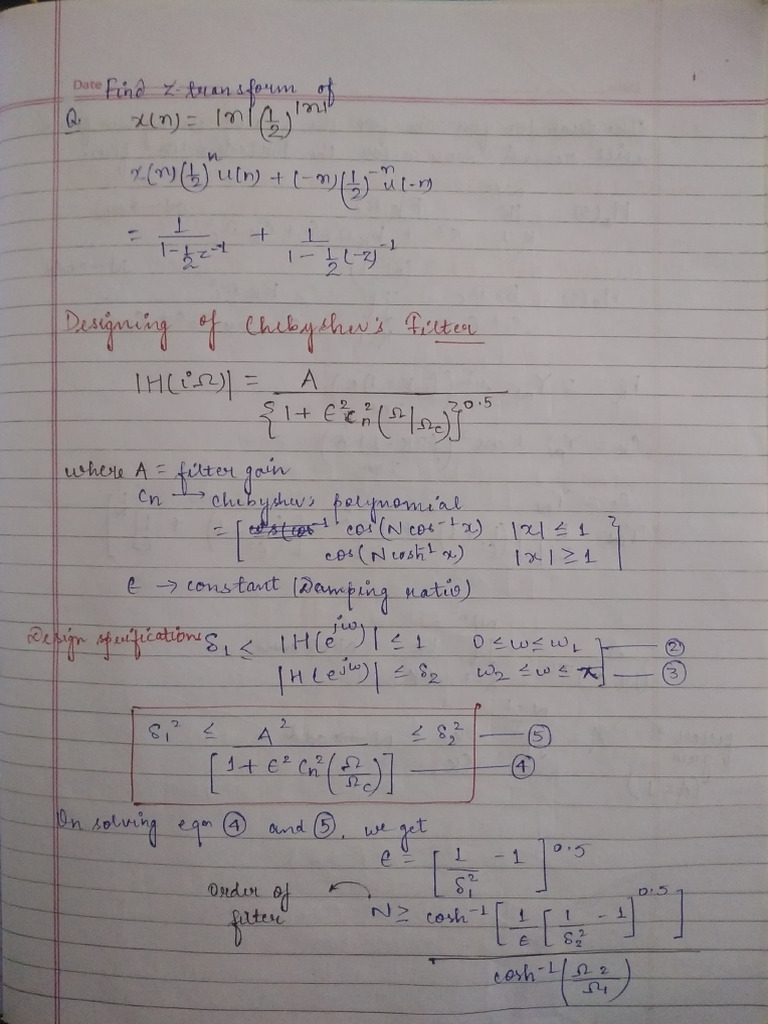 Date Find z-transform of
Q. x(n) = |n| (1/2)^|n|
x(n) (1/2)^n u(n) + (-n) (1/2)^-n u(-n)
= 1/(1 - 1/2 z^-1) + 1/(1 - 1/2 (-z)^-1)
Designing of Chebyshev's Filter
|H(iΩ)| = A / {1 + ϵ² C_n² (Ω|Ω_c)}^0.5
where A = filter gain
Cn → chebyshev's polynomial
= [ cos(N cos^-1 x) |x| ≤ 1
cos(N cosh^-1 x) |x| ≥ 1 ]
ϵ → constant (Damping ratio)
Design specifications δ₁ ≤ |H(e^jω)| ≤ 1 0 ≤ ω ≤ ω₁ — ②
|H(e^jω)| ≤ δ₂ ω₂ ≤ ω ≤ π — ③
δ₁² ≤ A² / [1 + ϵ² C_n² (Ω/Ω_c)] ≤ δ₂² — ⑤
— ④
On solving eqn ④ and ⑤, we get
ϵ = [1/δ₁² - 1]^0.5
Order of filter ← N ≥ cosh^-1 [1/ϵ [1/δ₂² - 1]^0.5] / cosh^-1 (Ω₂/Ω₁)